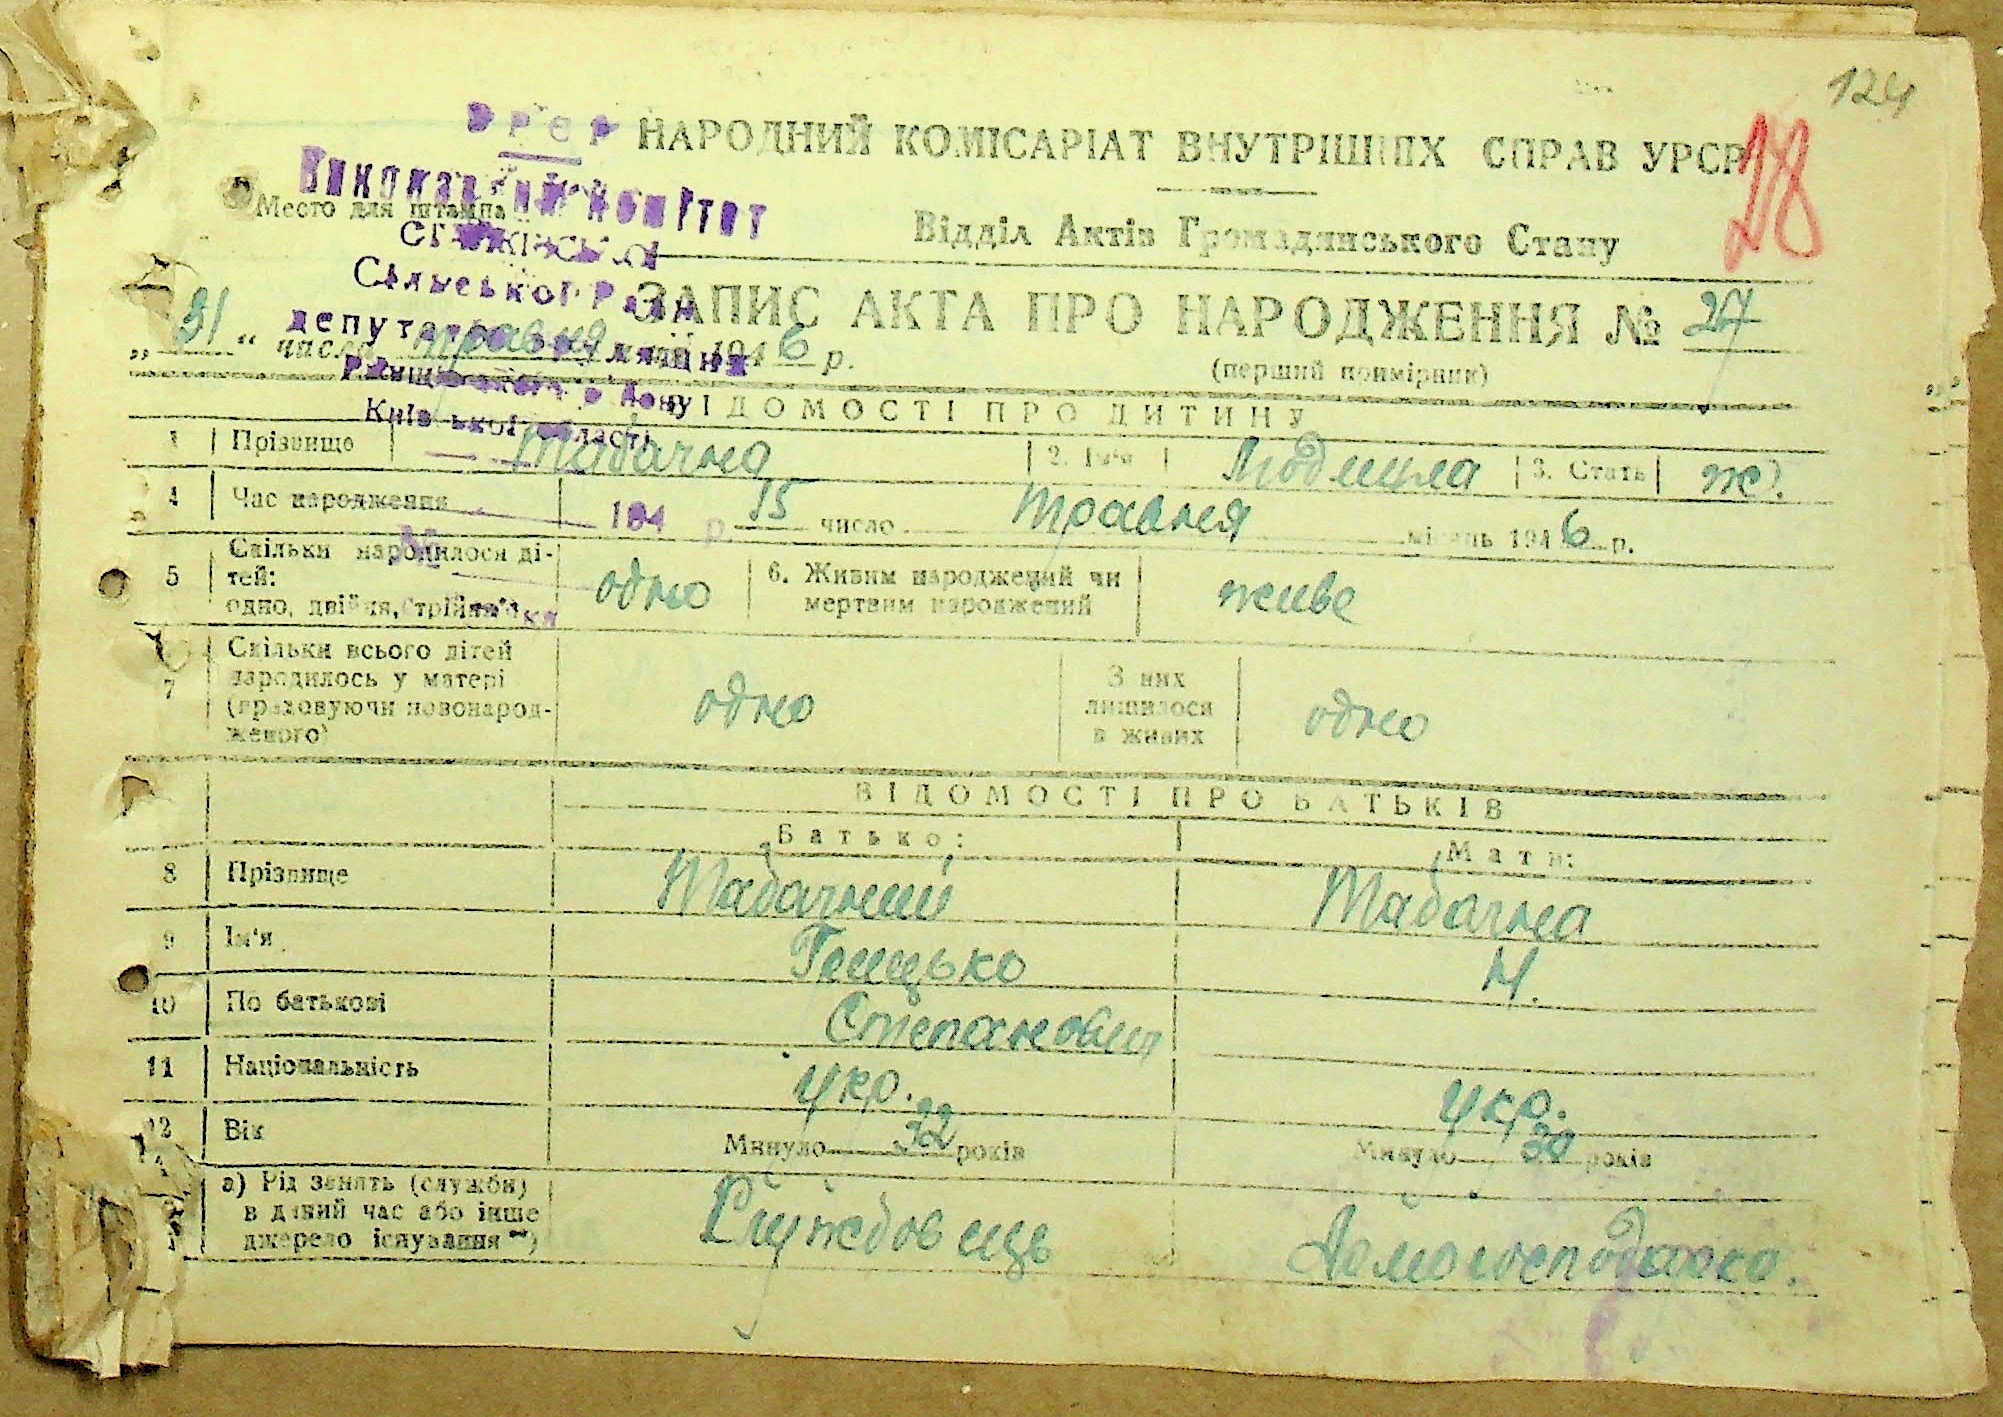 124
УРСР
НАРОДНИЙ КОМІСАРІАТ ВНУТРІШНІХ СПРАВ УРСР
28
Виконавчий комітет
Место для штампа
Відділ Актів Громадянського Стану
Сільської Ради
ЗАПИС АКТА ПРО НАРОДЖЕННЯ № 27
депутатів трудящих
„31“ числа травня 1946 р.
(перший примірник)
Київської області
ВІДОМОСТІ ПРО ДИТИНУ
1 Прізвище Табачна 2. Ім'я Людмила 3. Стать ж).
4 Час народження 15 число травня місяць 1946 р.
194 р.
№
5 Скільки народилося дітей: одно, двійня, трійня одно 6. Живим народжений чи мертвим народжений живе
7 Скільки всього дітей народилось у матері (враховуючи новонародженого) одно З них лишилося в живих одно
ВІДОМОСТІ ПРО БАТЬКІВ
Батько: Мати:
8 Прізвище Табачний Табачна
9 Ім'я Грицько М.
10 По батькові Степанович
11 Національність укр. укр.
12 Вік Минуло 32 років Минуло 30 років
а) Рід занять (служби) в даний час або інше джерело існування **) Службовець Домогосподарка.